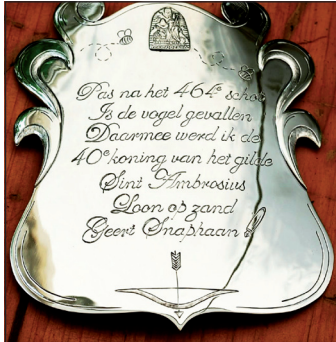 Pas na het 464e schot
Is de vogel gevallen
Daarmee werd ik de
40e koning van het gilde
Sint Ambrosius
Loon op zand
Geert Snaphaan